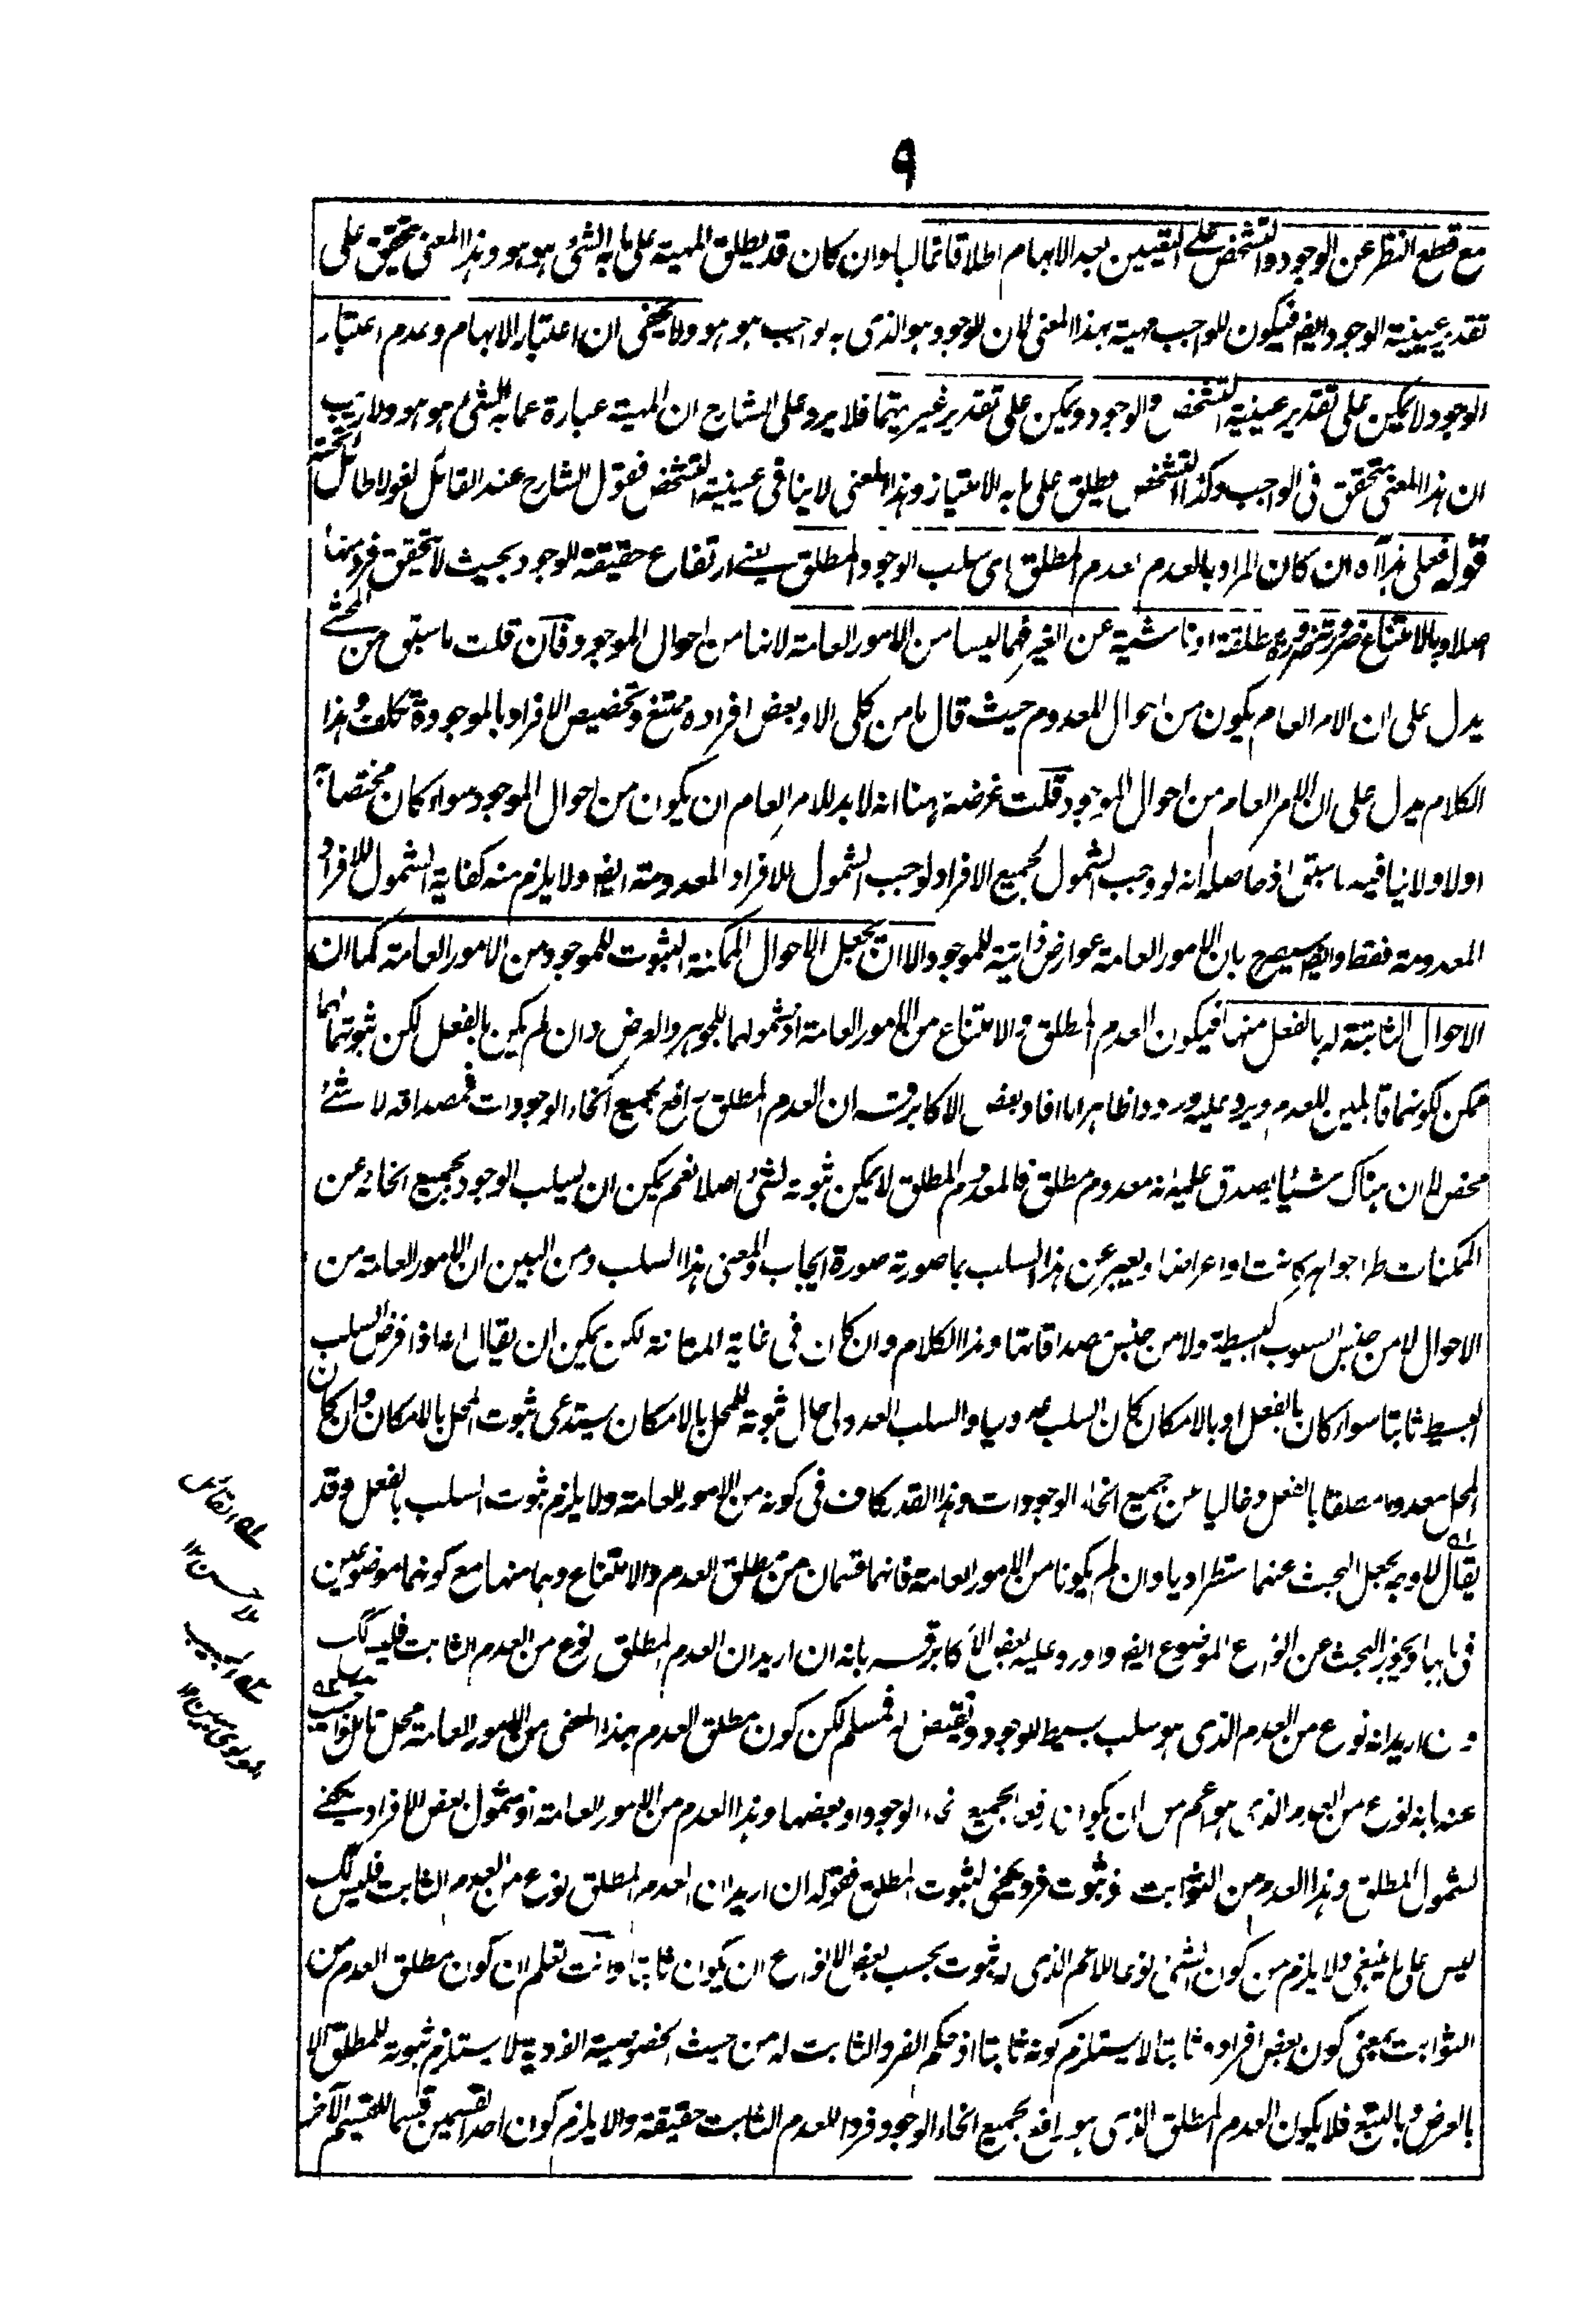 ٩
مع قطع النظر عن الوجود والتشخص على اليقين بعد الابهام اطلاقا غالبا وان كان قد يطلق المهية على ما به الشئ هو هو وهذا المعنى يتحقق على
تقدير عينية الوجود ايضا فيكون للواجب مهية بهذا المعنى لان الوجود هو الذى به الواجب هو هو ولا يخفى ان اعتبار الابهام وعدم اعتبار
الوجود لا يمكن على تقدير عينية التشخص والوجود ويمكن على تقدير غيريتهما فلا يرد على الشارح ان المهية عبارة عما به الشئ هو هو ولا ريب
ان هذا المعنى متحقق فى الواجب وكذا التشخص يطلق على ما به الامتياز وهذا المعنى لا ينافى عينية التشخص فقول الشارح عند القائل لغو لا طائل تحته
قوله فعلى هذا آه ان كان المراد بالعدم العدم المطلق اى سلب الوجود المطلق يعنى ارتفاع حقيقة الوجود بحيث لا يتحقق فرد منها
اصلا وبالامتناع ضرورته ضرورة مطلقة او ناشية عن الغير فهما ليسا من الامور العامة لانها من احوال الموجود فان قلت ما سبق من المحشى
يدل على ان الامر العام يكون من احوال المعدوم حيث قال ما من كلى الا وبعض افراده ممتنع وتخصيص الافراد بالموجودة تكلف وهذا
الكلام يدل على ان الامر العام من احوال الموجود قلت غرضه ههنا انه لا بد للامر العام ان يكون من احوال الموجود سواء كان مختصا به
اولا ولا ينافيه ما سبق اذ حاصله انه لو وجب الشمول لجميع الافراد لوجب الشمول للافراد المعدومة ايضا ولا يلزم منه كفاية الشمول للافراد
المعدومة فقط وايضا سيصرح بان الامور العامة عوارض ذاتية للموجود الا ان يجعل الاحوال الممكنة الثبوت للموجود من الامور العامة كما ان
الاحوال الثابتة له بالفعل منها فيكون العدم المطلق والامتناع من الامور العامة اذ شمولهما للجوهر والعرض وان لم يكن بالفعل لكن ثبوتهما لهما
ممكن لكونهما قابلين للعدم ويرد عليه ورودا ظاهرا ما افاد بعض الاكابر قدس سره ان العدم المطلق رافع لجميع انحاء الوجودات فمصداقه لا شئ
محض لا ان هناك شيئا يصدق عليه انه معدوم مطلق فالمعدوم المطلق لا يمكن ثبوته لشئ اصلا نعم يمكن ان يسلب الوجود بجميع انحائه عن
الممكنات طرا جواهر كانت او اعراضا ويعبر عن هذا السلب بما صورته صورة ايجاب والمعنى هذا السلب ومن البين ان الامور العامة من
الاحوال لا من جنس السلوب البسيطة ولا من جنس مصداقاتها وهذا الكلام وان كان فى غاية المتانة لكن يمكن ان يقال اذا فرض السلب
البسيط ثابتا سواء كان بالفعل او بالامكان كان السلب عدوليا والسلب العدولى حال ثبوته للمحل بالامكان يستدعى ثبوت المحل بالامكان وان كان
المحل معدوما مطلقا بالفعل وخاليا عن جميع انحاء الوجودات وهذا القدر كاف فى كونه من الامور العامة ولا يلزم ثبوت السلب بالفعل وقد
يقال الاوجه يجعل البحث عنهما استطراديا وان لم يكونا من الامور العامة فانهما قسمان من مطلق العدم والامتناع وهما منها مع كونهما موضوعين
فى بابها ويجوز البحث عن انواع الموضوع ايضا واورد عليه بعض الاكابر قدس سره بانه ان اريد ان العدم المطلق نوع من العدم الثابت فليس كك
وان اريد انه نوع من العدم الذى هو سلب بسيط للوجود ونقيض له فمسلم لكن كون مطلق العدم بهذا المعنى من الامور العامة محل تامل واجيب
عنه بانه نوع من العدم الذى هو اعم من ان يكون رفعا لجميع انحاء الوجود او بعضها وهذا العدم من الامور العامة اذ شمول بعض الافراد يكفى
لشمول المطلق وهذا العدم من الثوابت اذ ثبوت فرد يكفى لثبوت المطلق فقوله ان اريد ان العدم المطلق نوع من العدم الثابت فليس كك
ليس على ما ينبغى ولا يلزم من كون الشئ نوعا للاعم الذى له ثبوت بحسب بعض الانواع ان يكون ثابتا وانت تعلم ان كون مطلق العدم من
الثوابت بمعنى كون بعض افراده ثابتا لا يستلزم كونه ثابتا اذ حكم الفرد الثابت له من حيث الخصوصية الفردية لا يستلزم ثبوته للمطلق الا
بالعرض وبالتبع فلا يكون العدم المطلق الذى هو رافع لجميع انحاء الوجود فردا للعدم الثابت حقيقة والا يلزم كون احد القسمين قسما للقسيم الآخر
القائل
حسن ١٢
المجيب
مولوى مبين ١٢